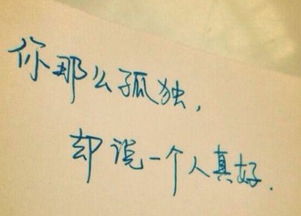 你那么孤独,
却说一个人真好.